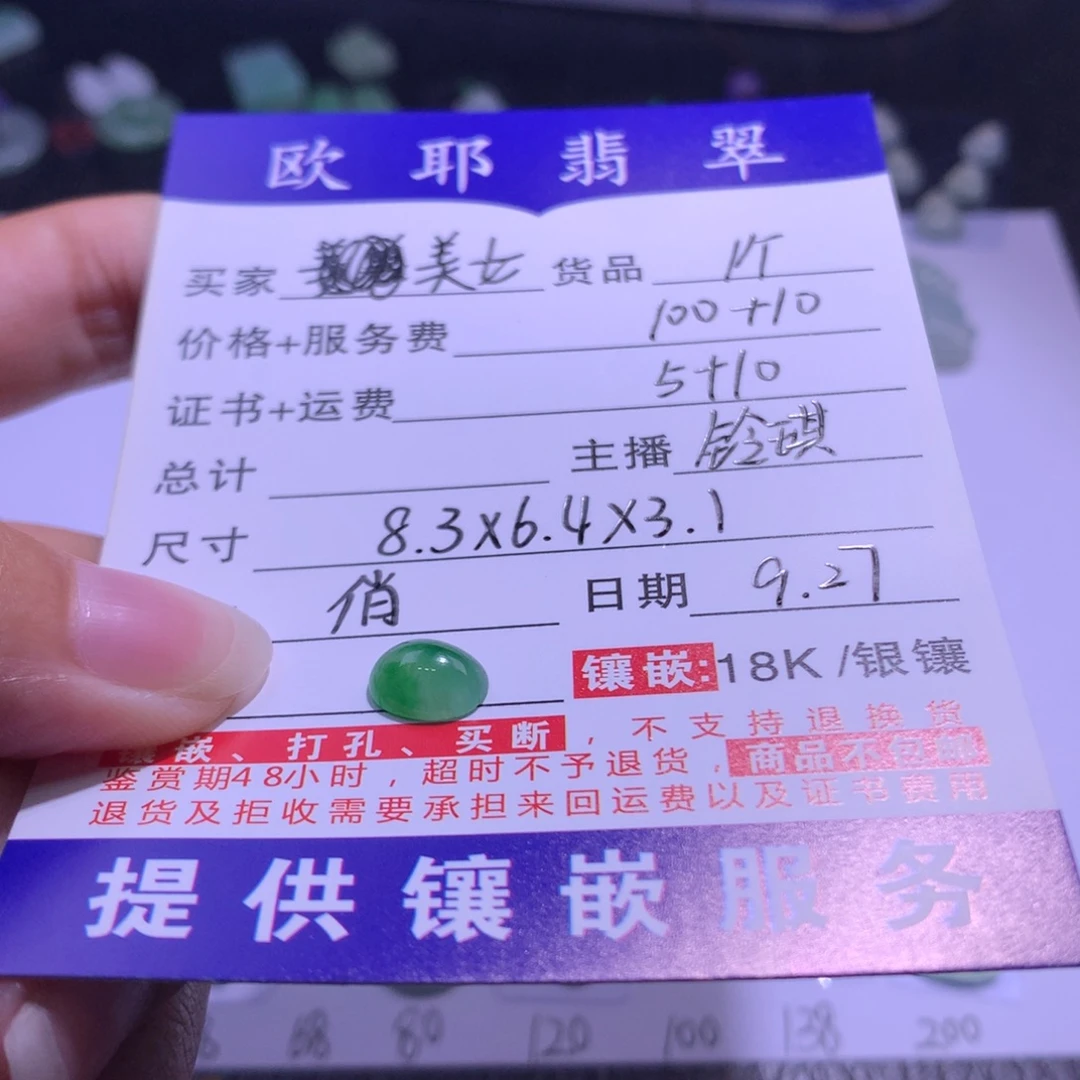 欧耶翡翠
买家 美女 货品 1件
价格+服务费 100+10
证书+运费 5+10
总计 主播 铃琪
尺寸 8.3x6.4x3.1
俏 日期 9.27
镶嵌:18K/银镶
镶嵌、打孔、买断,不支持退换货
鉴赏期48小时,超时不予退货,商品不包邮
退货及拒收需要承担来回运费以及证书费用
提供镶嵌服务
68 80 120 100 138 200